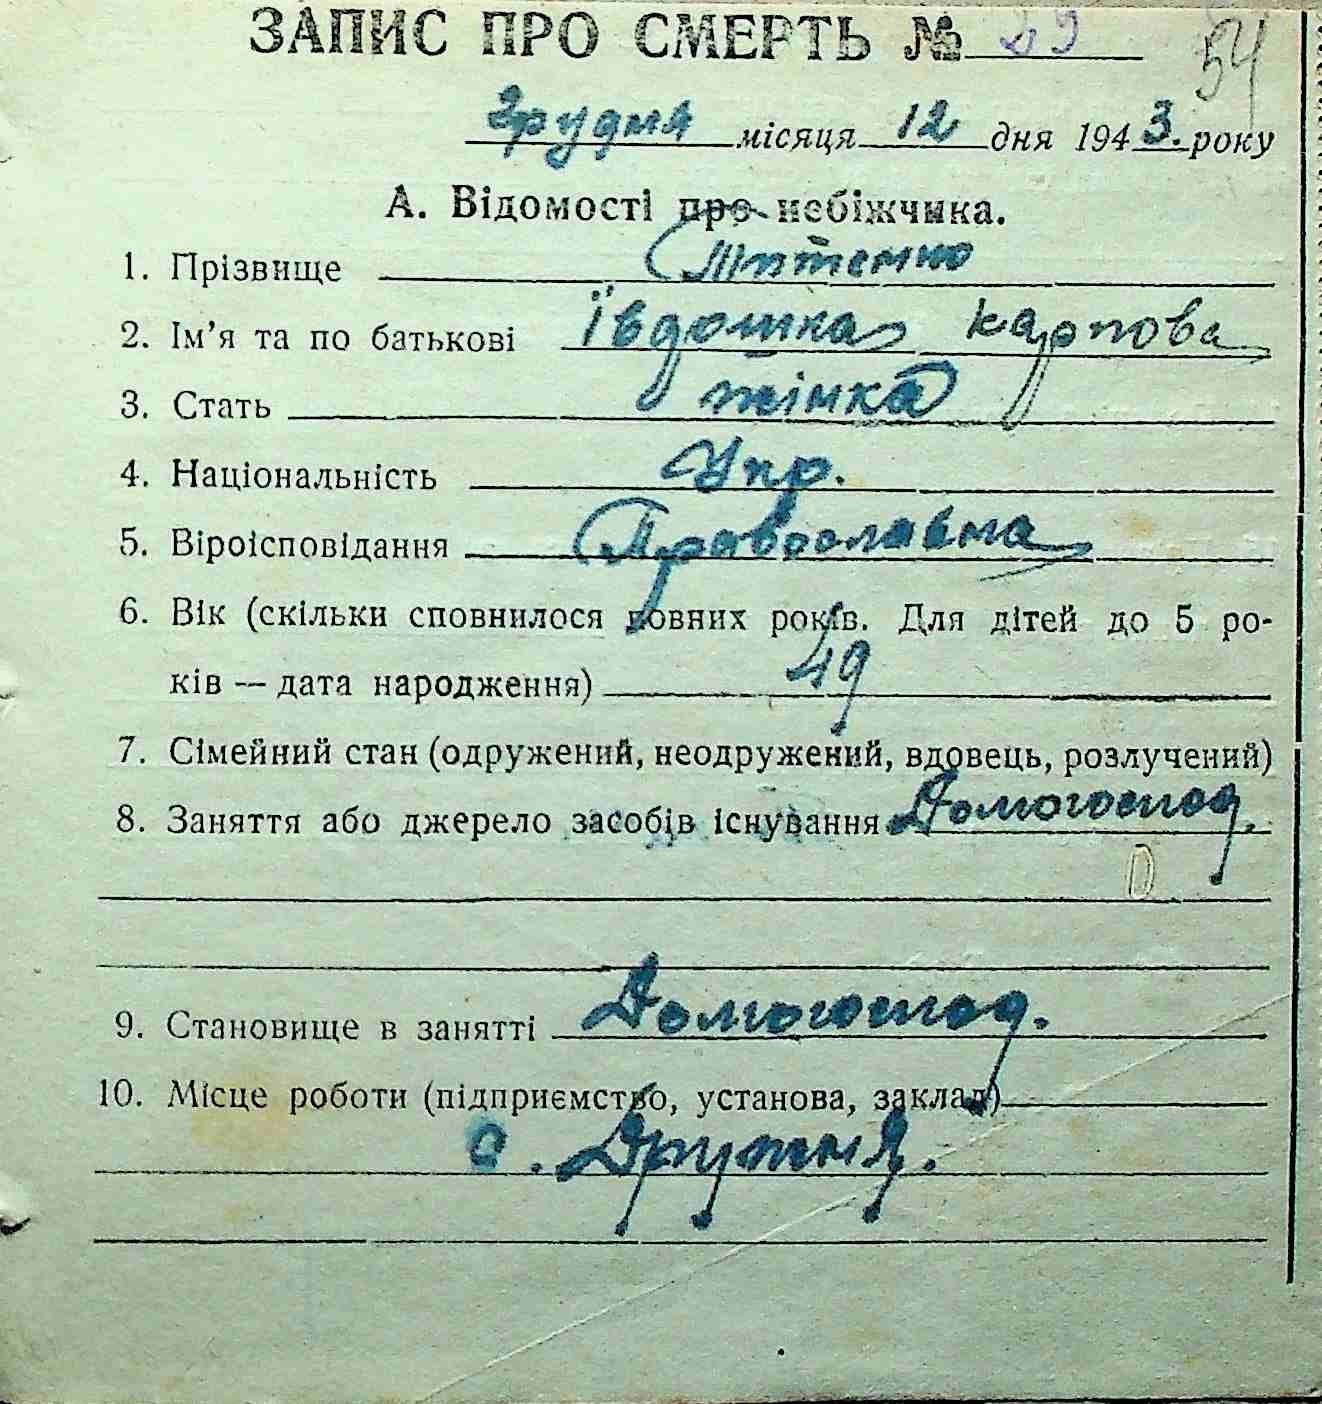 ЗАПИС ПРО СМЕРТЬ № 29
54
Грудня місяця 12 дня 1943. року
А. Відомості про небіжчика.
1. Прізвище Титенко
2. Ім’я та по батькові Ївдошка Карпова
3. Стать жінка
4. Національність Укр.
5. Віроісповідання Православна
6. Вік (скільки сповнилося повних років. Для дітей до 5 ро-
ків — дата народження) 49
7. Сімейний стан (одружений, неодружений, вдовець, розлучений)
8. Заняття або джерело засобів існування Домогоспод.
9. Становище в занятті Домогоспод.
10. Місце роботи (підприємство, установа, заклад)
с. Дружня.